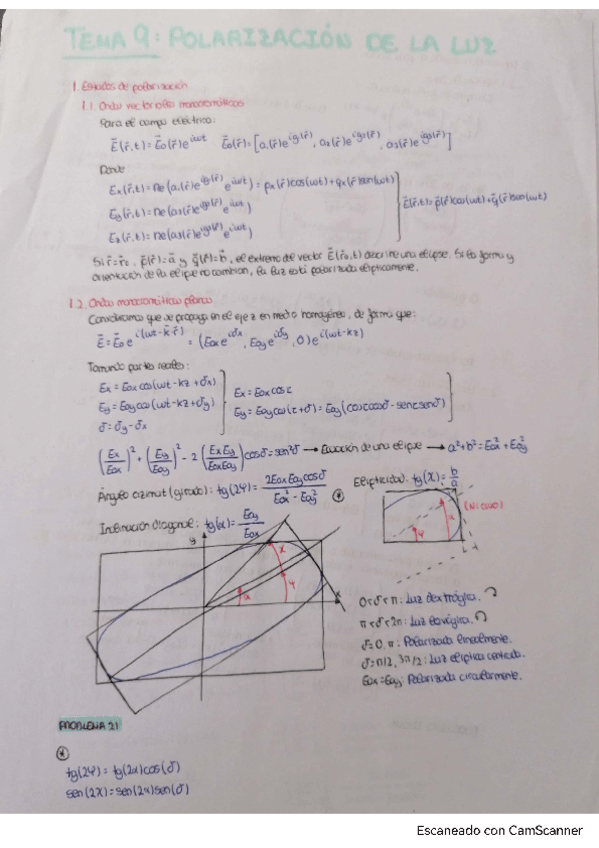 TEMA 9: POLARIZACIÓN DE LA LUZ
1. Estados de polarización
1.1. Ondas vectoriales monocromáticas
Para el campo eléctrico:
E⃗(r⃗,t) = E⃗₀(r⃗)e^{iωt}   E⃗₀(r⃗) = [a₁(r⃗)e^{ig₁(r⃗)}, a₂(r⃗)e^{ig₂(r⃗)}, a₃(r⃗)e^{ig₃(r⃗)}]
Donde
Ex(r⃗,t) = Re(a₁(r⃗)e^{ig₁(r⃗)} e^{iωt}) = px(r⃗)cos(ωt) + qx(r⃗)sen(ωt)
E⃗(r⃗,t) = p⃗(r⃗)cos(ωt) + q⃗(r⃗)sen(ωt)
Si r⃗=r⃗₀, p⃗(r⃗)=a⃗ y q⃗(r⃗)=b⃗, el extremo del vector E⃗(r₀,t) describe una elipse. Si la forma y
orientación de la elipse no cambian, la luz está polarizada elípticamente.
1.2. Ondas monocromáticas planas
Consideramos que se propaga en el eje z en medio homogéneo, de forma que:
E⃗ = E⃗₀ e^{i(ωt-k⃗·r⃗)} = (E₀ₓe^{iδx}, E₀ye^{iδy}, 0)e^{i(ωt-kz)}
Tomando partes reales:
Ex = E₀ₓcos(ωt-kz+δx)
Ey = E₀ycos(ωt-kz+δy)
δ = δy - δx
Ex = E₀ₓcosτ
Ey = E₀ycos(τ+δ) = E₀y(cosτcosδ - senτsenδ)
(Ex/E₀ₓ)² + (Ey/E₀y)² - 2(ExEy/E₀ₓE₀y)cosδ = sen²δ → Ecuación de una elipse → a²+b² = E₀ₓ²+E₀y²
Ángulo azimut (girado): tg(2Ψ) = 2E₀ₓE₀ycosδ / E₀ₓ² - E₀y² ⊛   Elipticidad: tg(χ) = b/a
Inclinación diagonal: tg(α) = E₀y/E₀ₓ
y
x
χ
Ψ
α
0<δ<π: Luz dextrógira.
π<δ<2π: Luz levógira.
δ=0, π: Polarizada linealmente.
δ=π/2, 3π/2: Luz elíptica centrada.
E₀ₓ=E₀y: Polarizada circularmente.
PROBLEMA 21
⊛
tg(2Ψ) = tg(2α)cos(δ)
sen(2χ) = sen(2α)sen(δ)
Escaneado con CamScanner